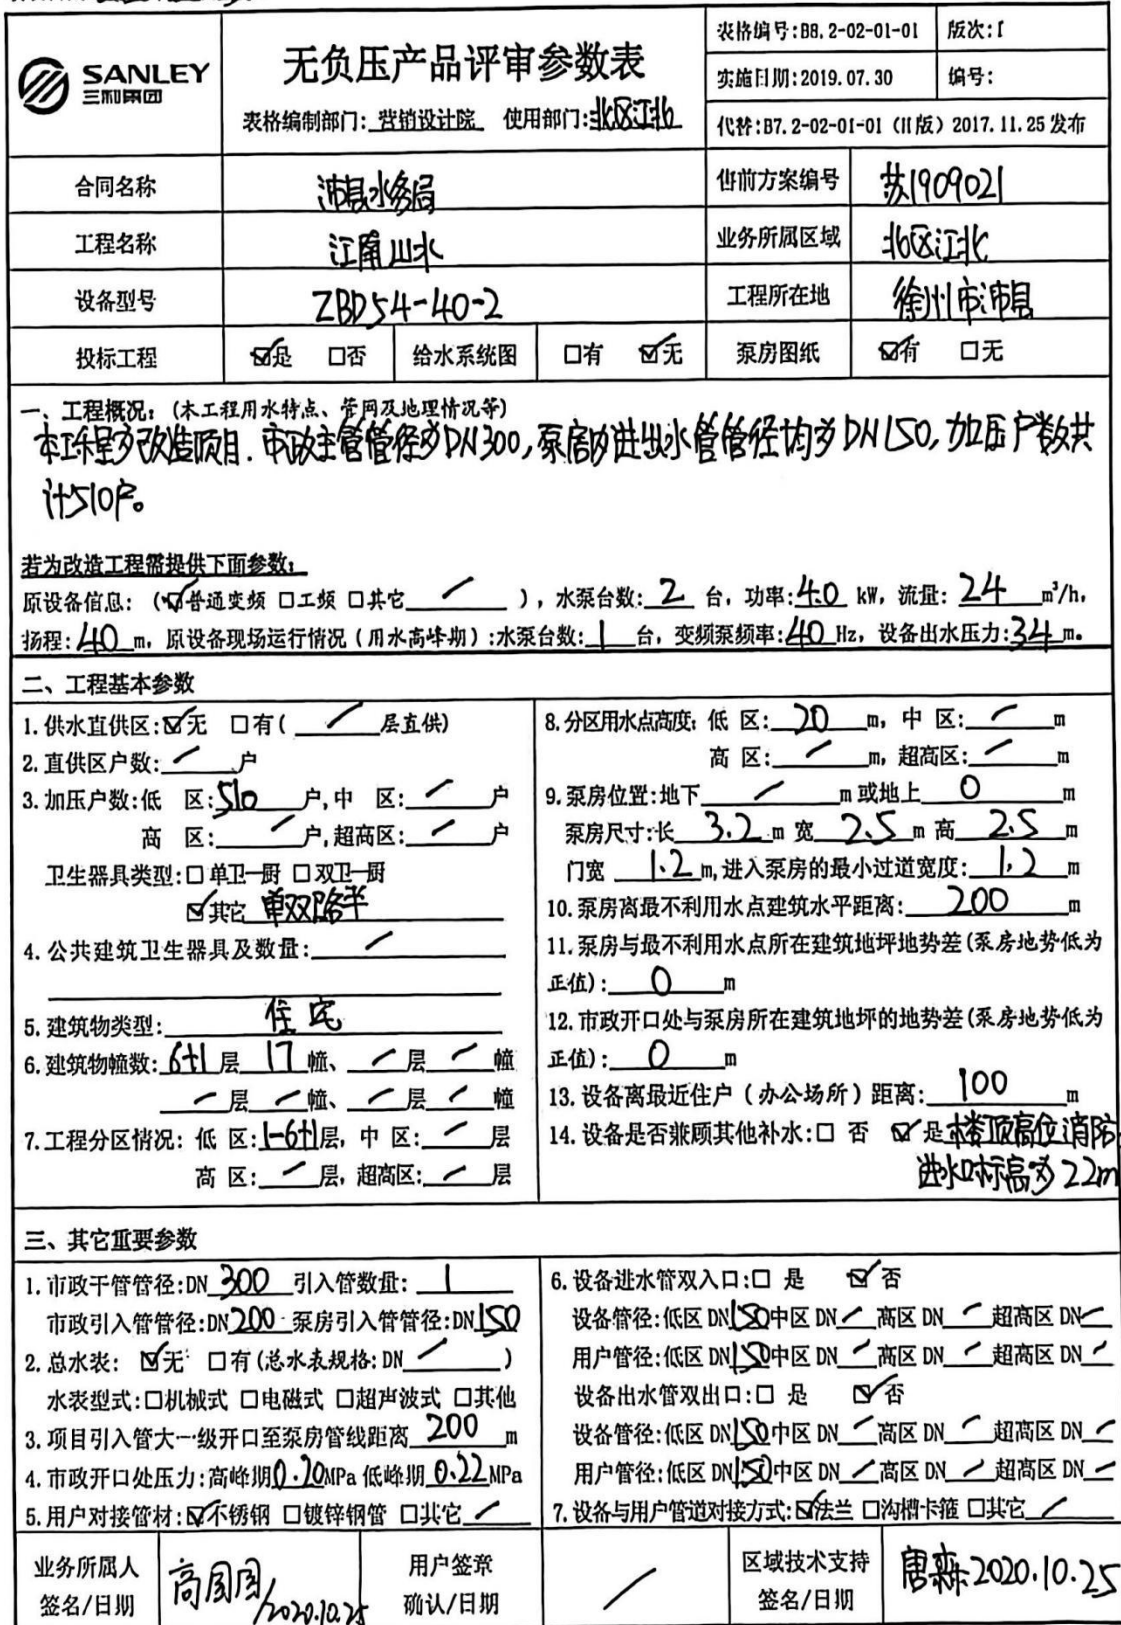 SANLEY
三和集团
无负压产品评审参数表
表格编制部门:营销设计院 使用部门:北区江北
表格编号:B8.2-02-01-01 版次:I
实施日期:2019.07.30 编号:
代替:B7.2-02-01-01 (II版) 2017.11.25 发布
合同名称 沛县水务局 售前方案编号 苏1909021
工程名称 江南山水 业务所属区域 北区江北
设备型号 ZBD54-40-2 工程所在地 徐州市沛县
投标工程 ☑是 □否 给水系统图 □有 ☑无 泵房图纸 ☑有 □无
一、工程概况:(本工程用水特点、管网及地理情况等)
本工程为改造项目.市政主管管径为DN300,泵房内进出水管管径均为DN150,加压户数共
计510户。
若为改造工程需提供下面参数:
原设备信息: (☑普通变频 □工频 □其它 / ),水泵台数: 2 台,功率:4.0 kW,流量: 24 m³/h,
扬程:40 m,原设备现场运行情况(用水高峰期):水泵台数:1 台,变频泵频率:40 Hz,设备出水压力:34 m。
二、工程基本参数
1.供水直供区:☑无 □有( / 层直供)
2.直供区户数: / 户
3.加压户数:低 区:510 户,中 区: / 户
高 区: / 户,超高区: / 户
卫生器具类型:□单卫一厨 □双卫一厨
☑其它 单双各半
4.公共建筑卫生器具及数量: /
5.建筑物类型: 住宅
6.建筑物幢数:6+1 层 17 幢、 / 层 / 幢
/ 层 / 幢、 / 层 / 幢
7.工程分区情况: 低 区:1-6+1层,中 区: / 层
高 区: / 层,超高区: / 层
8.分区用水点高度: 低 区: 20 m, 中 区: / m
高 区: / m,超高区: / m
9.泵房位置:地下 / m或地上 0 m
泵房尺寸:长 3.2 m 宽 2.5 m 高 2.5 m
门宽 1.2 m,进入泵房的最小过道宽度: 1.2 m
10.泵房离最不利用水点建筑水平距离: 200 m
11.泵房与最不利用水点所在建筑地坪地势差(泵房地势低为
正值): 0 m
12.市政开口处与泵房所在建筑地坪的地势差(泵房地势低为
正值): 0 m
13.设备离最近住户(办公场所)距离: 100 m
14.设备是否兼顾其他补水:□ 否 ☑ 是 楼顶高位消防
进水口标高为22m
三、其它重要参数
1.市政干管管径:DN 300 引入管数量: 1
市政引入管管径:DN 200 泵房引入管管径:DN 150
2.总水表: ☑无 □有(总水表规格:DN / )
水表型式:□机械式 □电磁式 □超声波式 □其他
3.项目引入管大一级开口至泵房管线距离 200 m
4.市政开口处压力:高峰期0.20MPa 低峰期 0.22 MPa
5.用户对接管材:☑不锈钢 □镀锌钢管 □其它 /
6.设备进水管双入口:□ 是 ☑ 否
设备管径:低区 DN150中区 DN / 高区 DN / 超高区 DN /
用户管径:低区 DN150中区 DN / 高区 DN / 超高区 DN /
设备出水管双出口:□ 是 ☑ 否
设备管径:低区 DN150中区 DN / 高区 DN / 超高区 DN /
用户管径:低区 DN150中区 DN / 高区 DN / 超高区 DN /
7.设备与用户管道对接方式:☑法兰 □沟槽卡箍 □其它 /
业务所属人
签名/日期
高周周/2020.10.25
用户签章
确认/日期
/
区域技术支持
签名/日期
2020.10.25